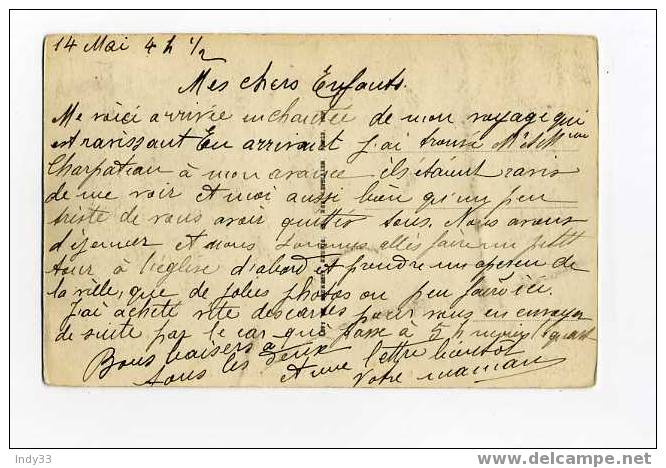 14 Mai 4 h 1/2
Mes chers Enfants.
Me voici arrivée enchantée de mon voyage qui
est ravissant En arrivant J'ai trouvé Mr et Mme
Charpatiau à mon avance ils étaient ravis
de me voir et moi aussi bien qu'un peu
triste de vous avoir quittés tous. Nous avons
déjeuner et nous sommes allés faire un petit
tour à l'église d'abord et prendre un aperçu de
la ville, que de jolies photos on peu faire ici.
J'ai acheté vite des cartes pour vous en envoyer
de suite par le car que passe à 5 h moins 1 quart
Bons baisers a
tous les deux
et une lettre bientot
Votre maman
Indy33
www.delcampe.net